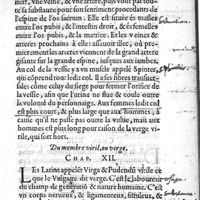 neri, vne veine, & vne artere, puis vont par tou-
te sa substance pour son sentiment: procedants de
l'espine de l'os sacrum. Elle est située és masles
entre l'os pubis, & l'intestin droit, & és femelles
entre l'os pubis, & la matrice. Et les veines &
arteres prochains à elle: assauoir illec, où pre-
mierement arteres viennent de la grand artere
gisant sur la grande espine, iusques aux iambes.
Au col de la vessie y a vn muscle appelé Spincter,
qui comprend tout ledit col. Il a ses fibres transuer-
sales cõme celuy du siege pour fermer l'orifice de
la vessie, afin que l'vrine ne flue sans cesse outre
la volonté du personnage. Aux femmes ledit col
est plus court, & plus large que aux hommes, à
cause qu'il ne passe point outre la vulue, mais aux
hommes est plus long pour raison de la verge viri-
le, qui sort hors.
Du membre viril, ou verge.
CHAP. XII.
LEs Latins appelét Virga & Pudendũ virile ce
que le Vulgaire dit verge. C'est le laboureur
du champ de generatiõ & nature humaine. C'est
vn corps nerueux, & ligamenteux, fistuleux, &